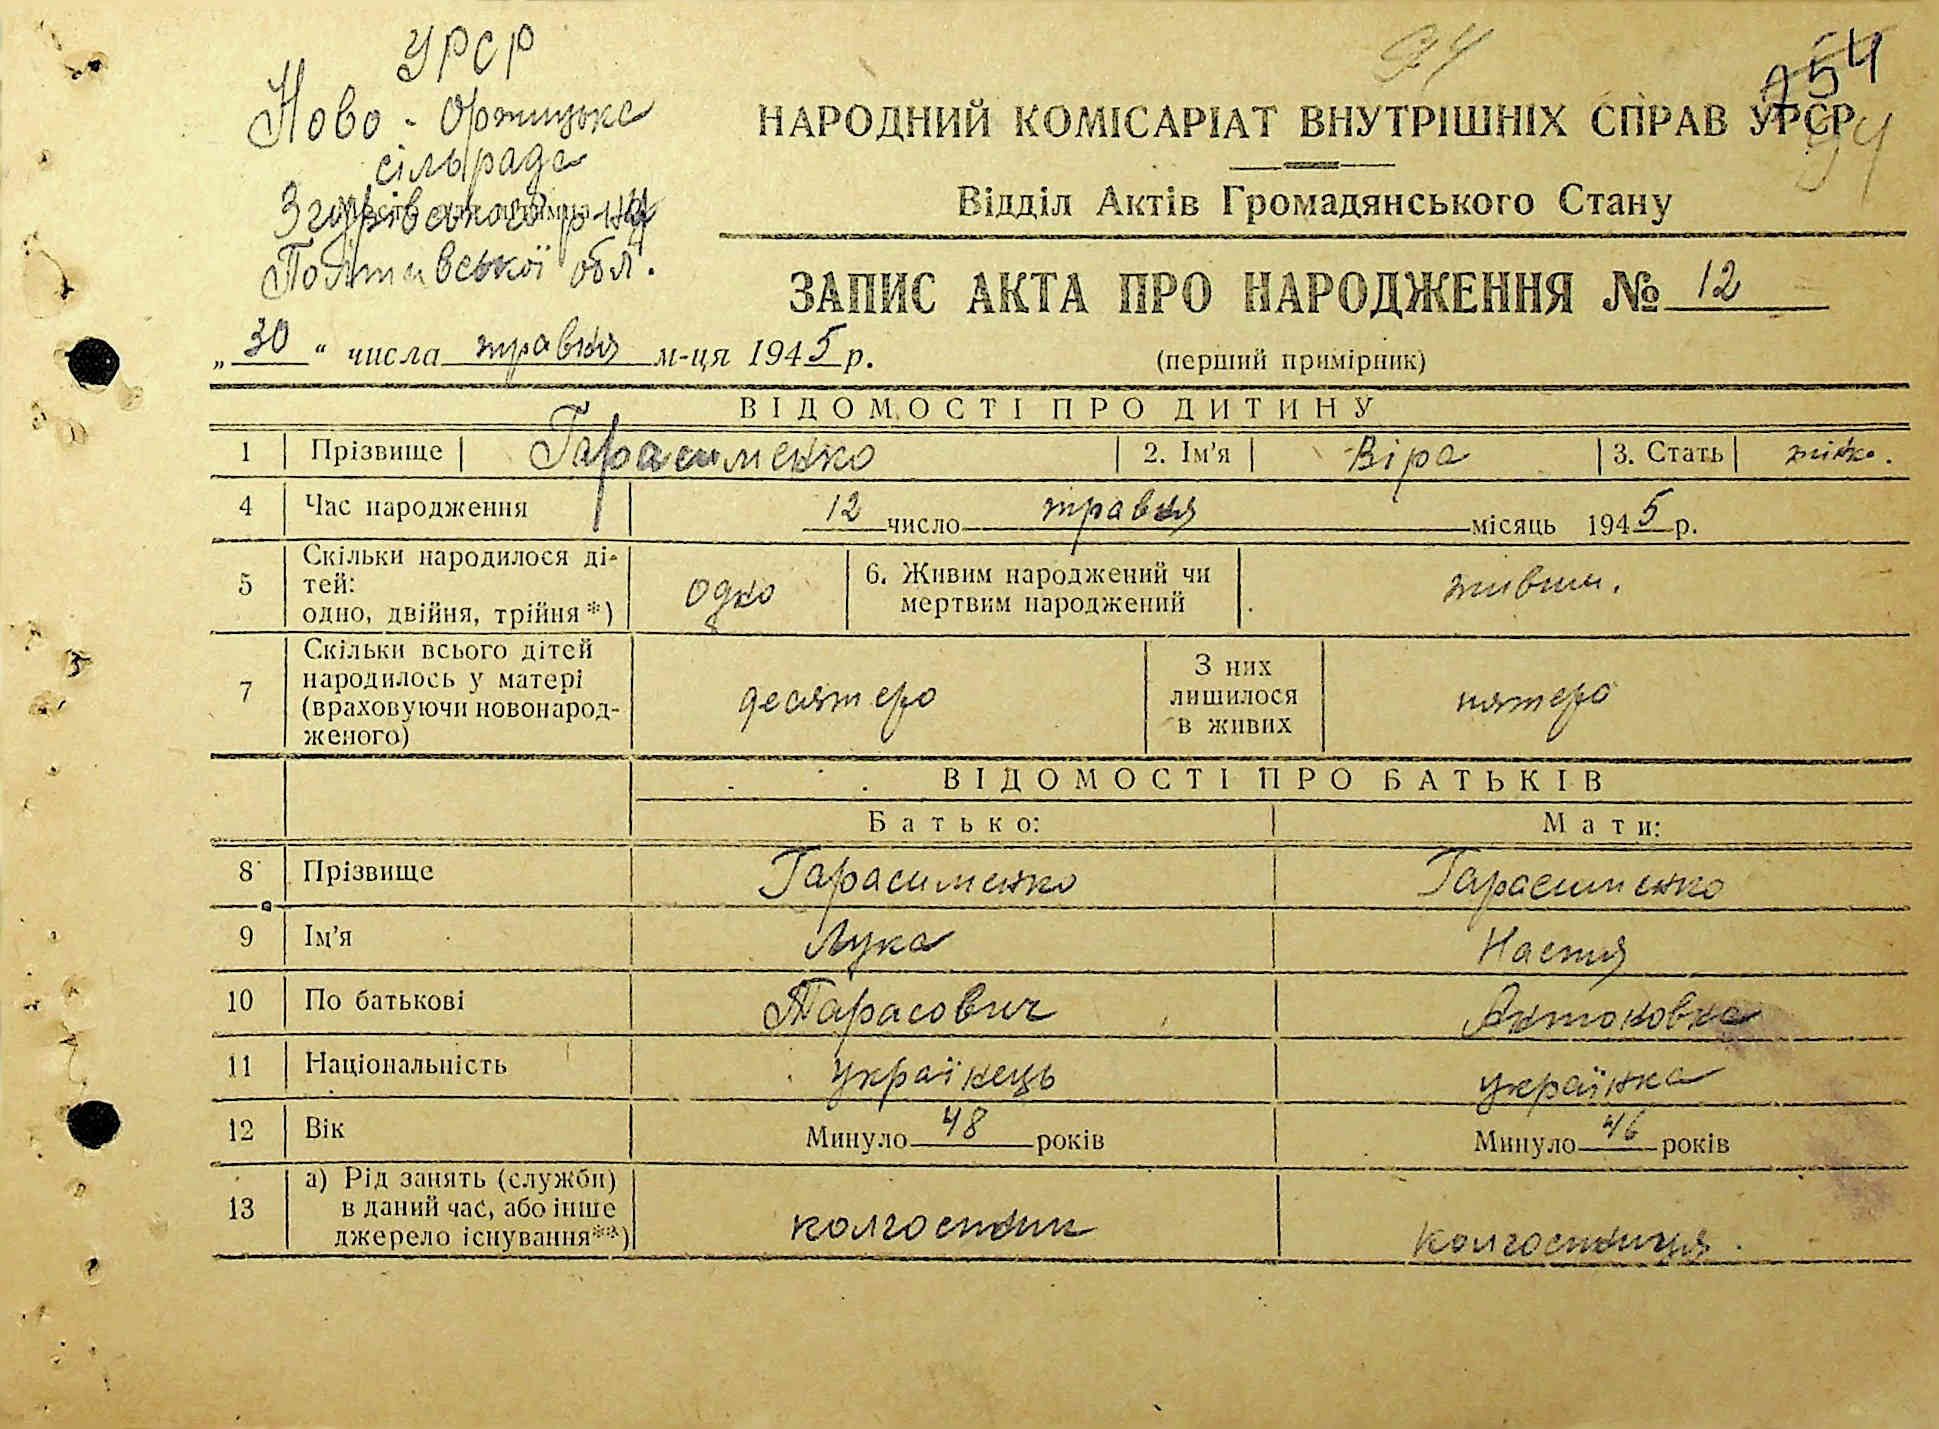 УРСР
Ново-Оржицька
сільрада
Згурівського р-ну
Полтавської обл.
94
254
94
НАРОДНИЙ КОМІСАРІАТ ВНУТРІШНІХ СПРАВ УРСР
Відділ Актів Громадянського Стану
ЗАПИС АКТА ПРО НАРОДЖЕННЯ № 12
„30“ числа травня м-ця 1945 р.
(перший примірник)
ВІДОМОСТІ ПРО ДИТИНУ
1 Прізвище Гарасименко 2. Ім'я Віра 3. Стать жінко.
4 Час народження 12 число травня місяць 1945 р.
5 Скільки народилося ді-
тей:
одно, двійня, трійня *) одно
6. Живим народжений чи
мертвим народжений живим.
7 Скільки всього дітей
народилось у матері
(враховуючи новонарод-
женого) десятеро
З них
лишилося
в живих пятеро
ВІДОМОСТІ ПРО БАТЬКІВ
Батько: Мати:
8 Прізвище Гарасименко Гарасименко
9 Ім'я Лука Настя
10 По батькові Тарасович Антоновна
11 Національність українець українка
12 Вік Минуло 48 років Минуло 46 років
13 а) Рід занять (служби)
в даний час, або інше
джерело існування**) колгоспник колгоспниця.